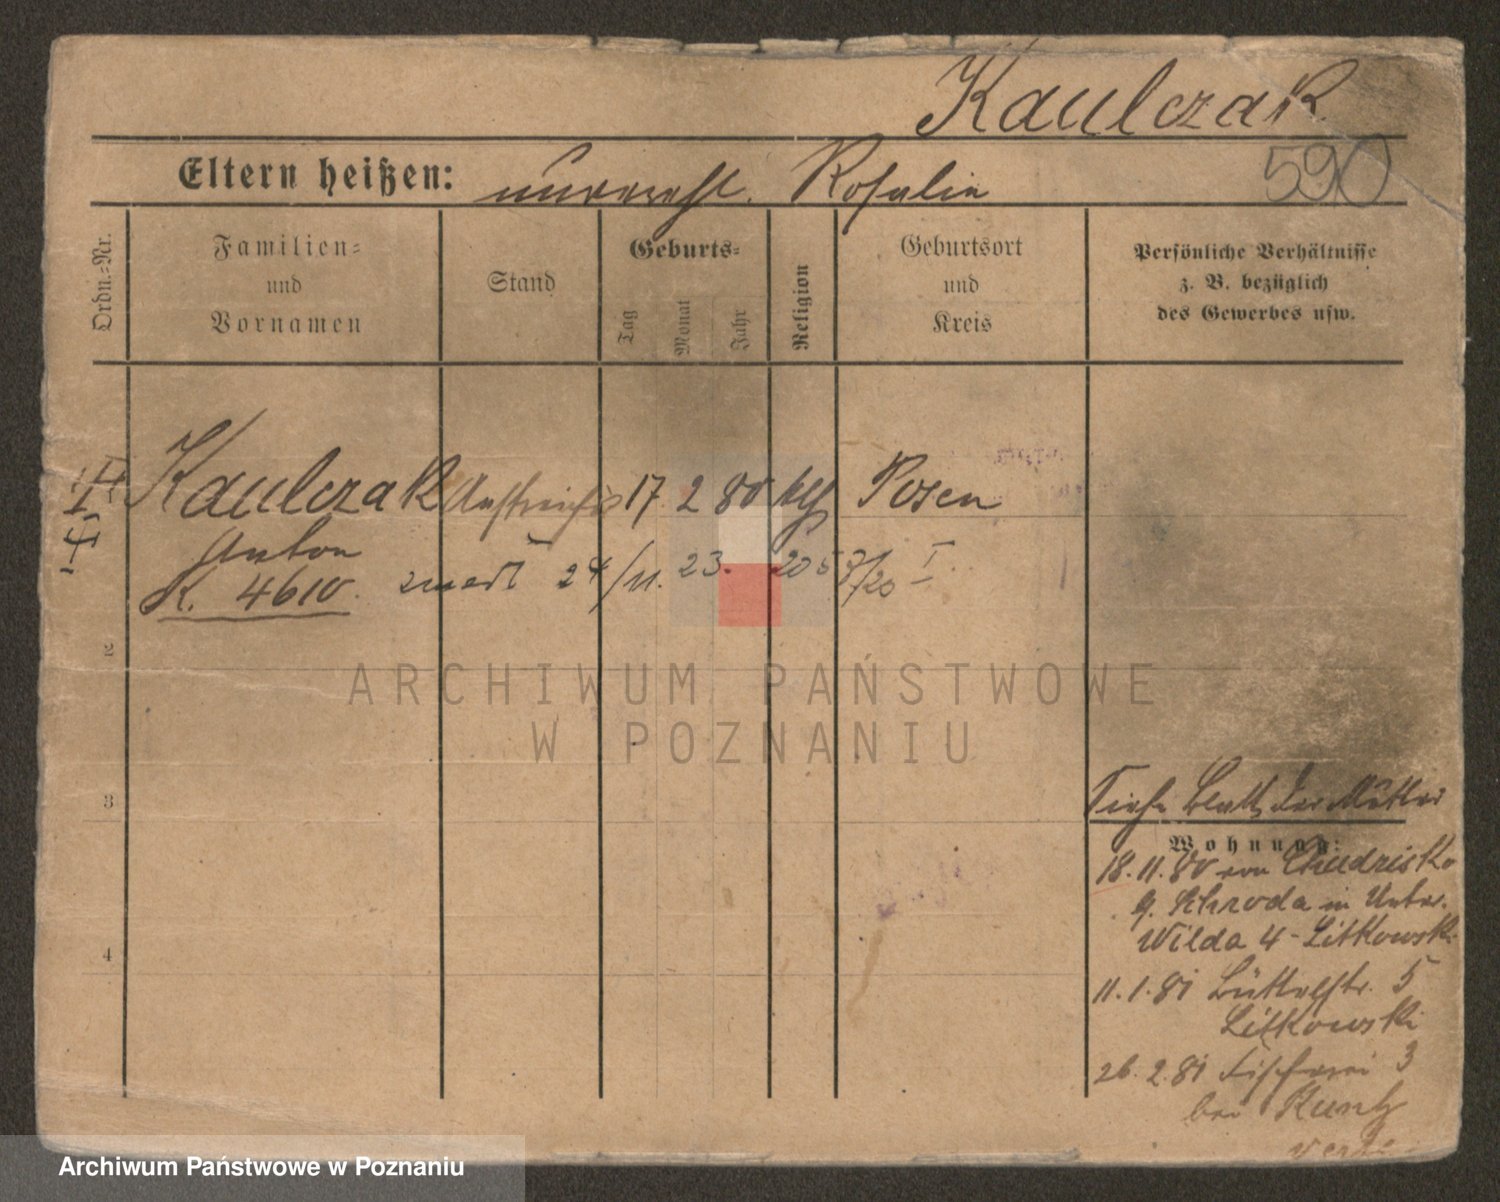 Kaulczak
590
Eltern heißen: unverehl. Rosalie
Ordn.=Nr.
Familien=
und
Vornamen
Stand
Geburts=
Tag
Monat
Jahr
Religion
Geburtsort
und
Kreis
Persönliche Verhältnisse
z. B. bezüglich
des Gewerbes usw.
Kaulczak 17. 2 80 kth Posen
Anton
K. 4610. zmarł 24/11. 23.
2
3
4
Siehe Blatt der Mutter
Wohnung:
18. 11. 80 von
g. Schroda in Unter.
Wilda 4 - Litkowski
11. 1. 81 Büttelstr. 5
Litkowski
26. 2. 81 Fischerei 3
bei
ARCHIWUM PAŃSTWOWE
W POZNANIU
Archiwum Państwowe w Poznaniu